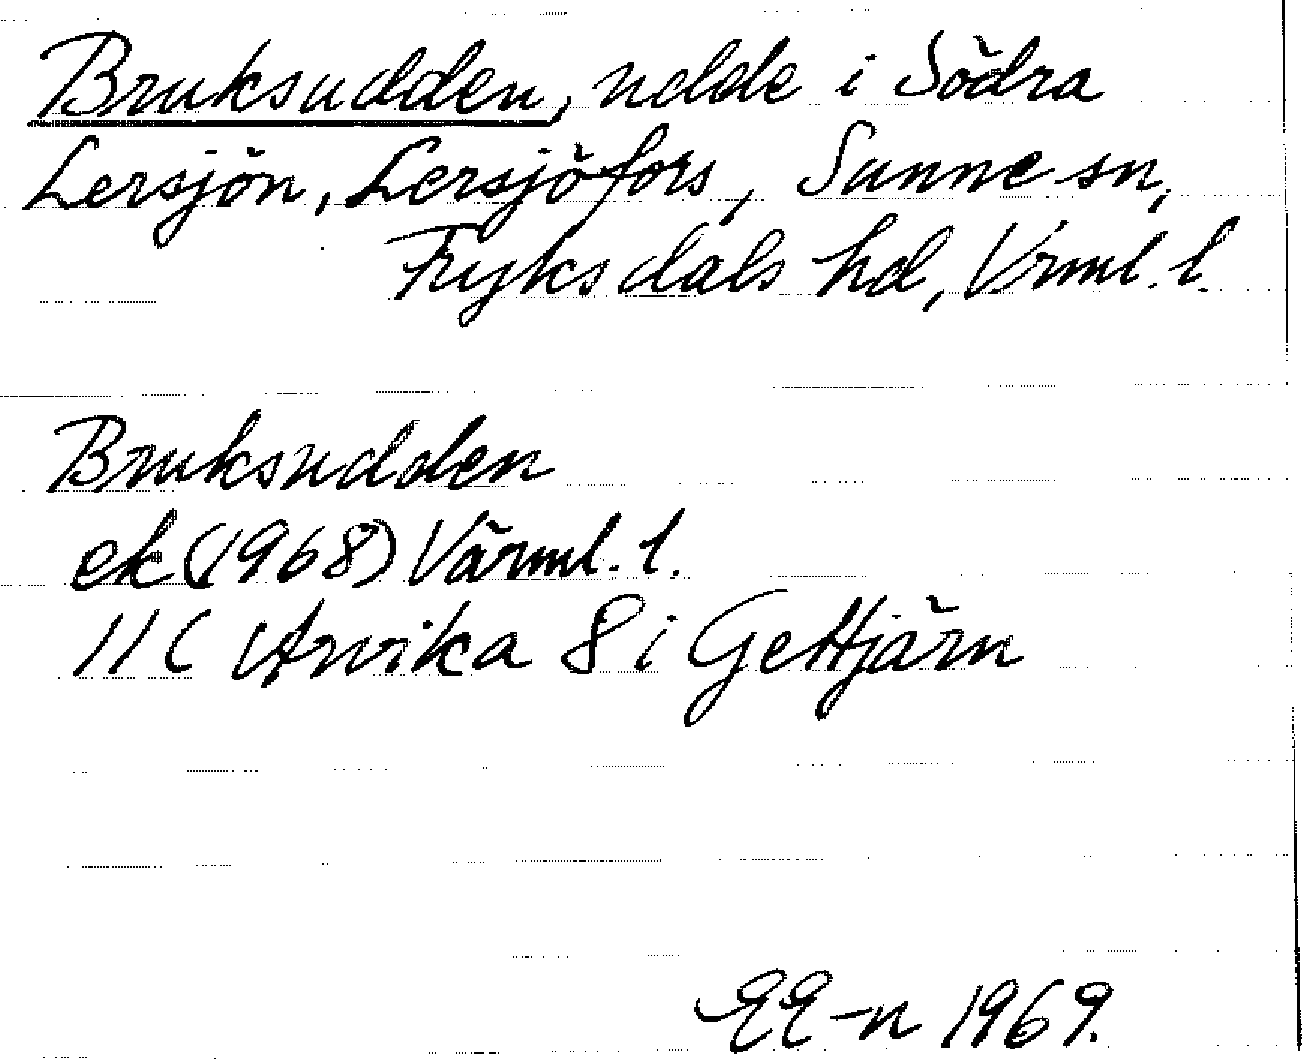 Bruksudden, udde i Södra
Lersjön, Lersjöfors, Sunne sn,
Fryksdals hd, Vrml. l.
Bruksudden
ek (1968) Värml. l.
11C Arvika 8i Gettjärn
EE-n 1969.